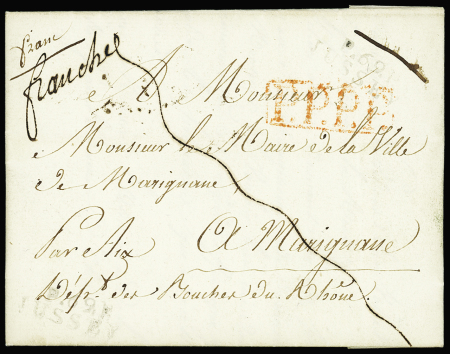 franche
A Monsieur
P.P.P.P.
Monsieur le Maire de la Ville
de Marignane
Par Aix A Marignane
Dépt. des Bouches du Rhône.